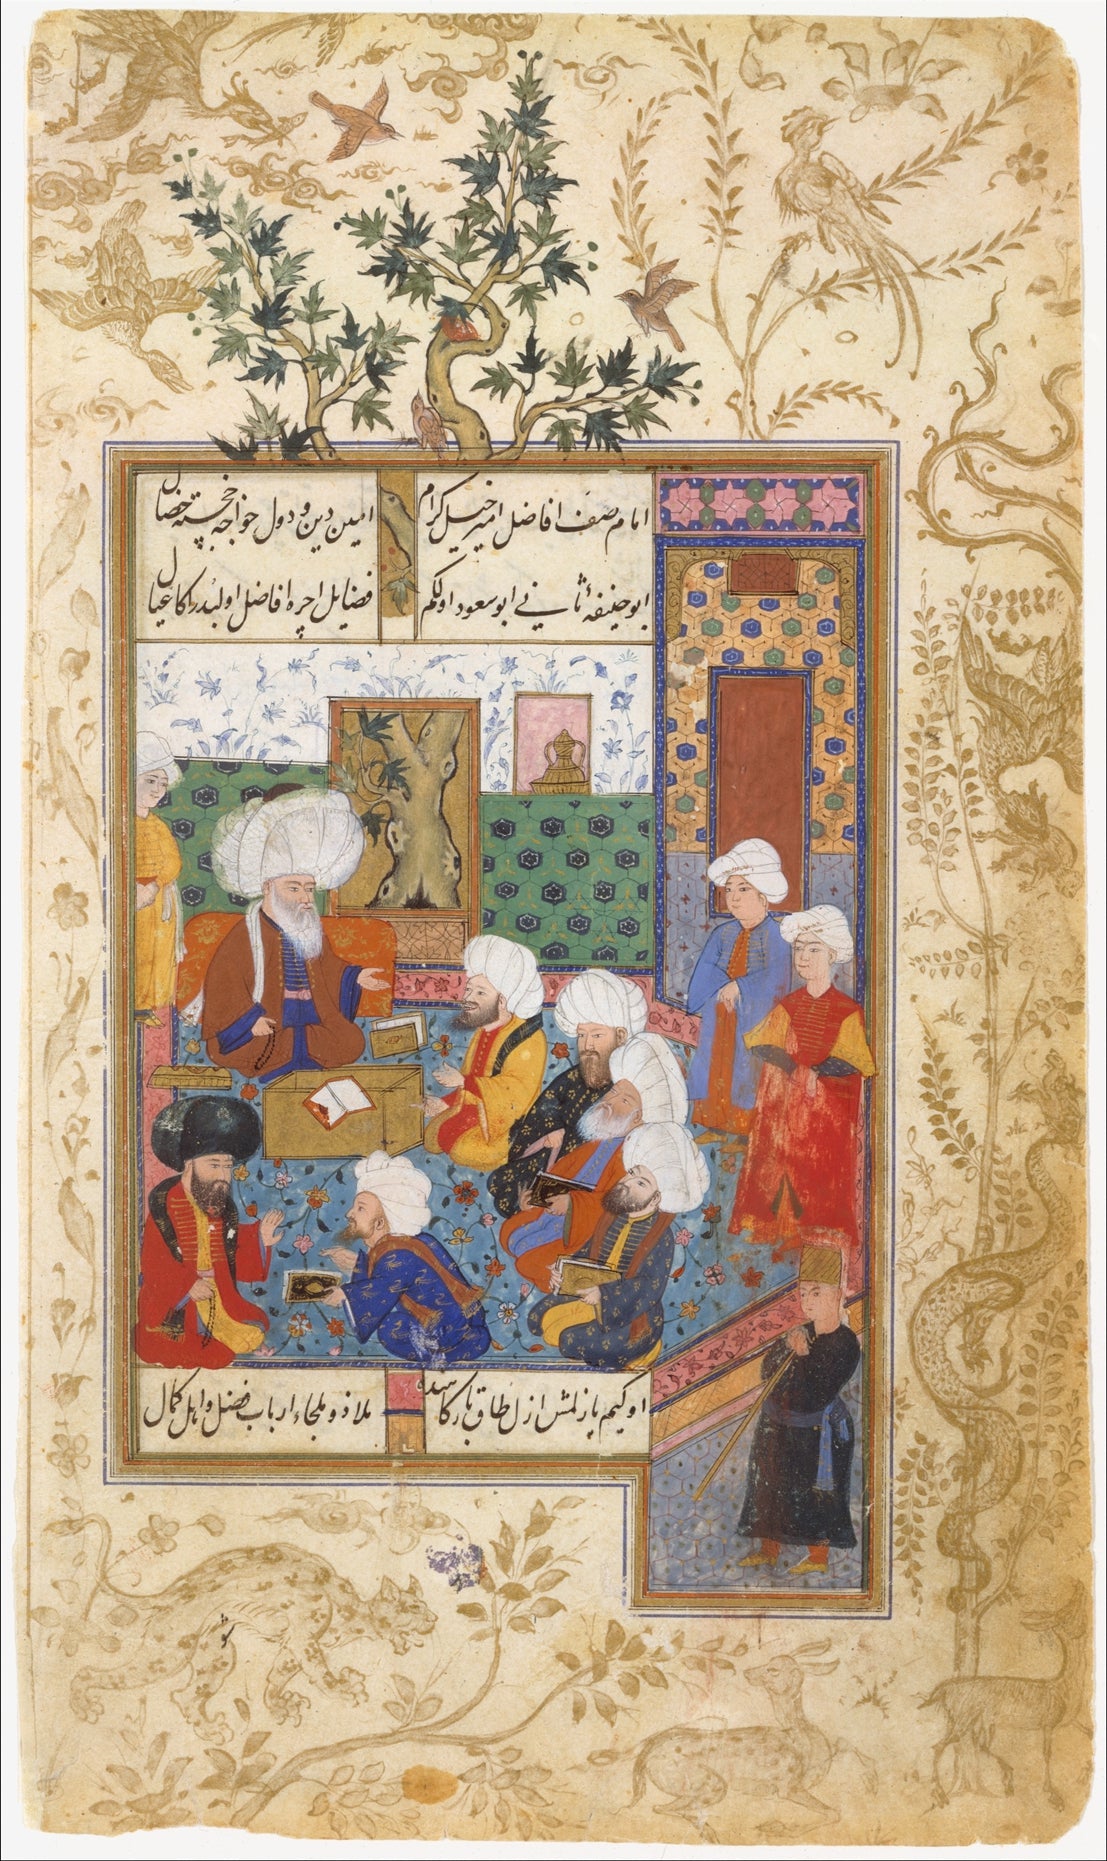 امام صف افاضل امیر خیل کرام امین دین و دول خواجه خجسته خصال
ابو حنیفهٔ ثانی ابو سعود اولکم فضایل اچره افاضل اولبدر اکا عیال
اوکیم یازلمش ازل طاق بارکاسنده ملاذ و ملجاء ارباب فضل و اهل کمال